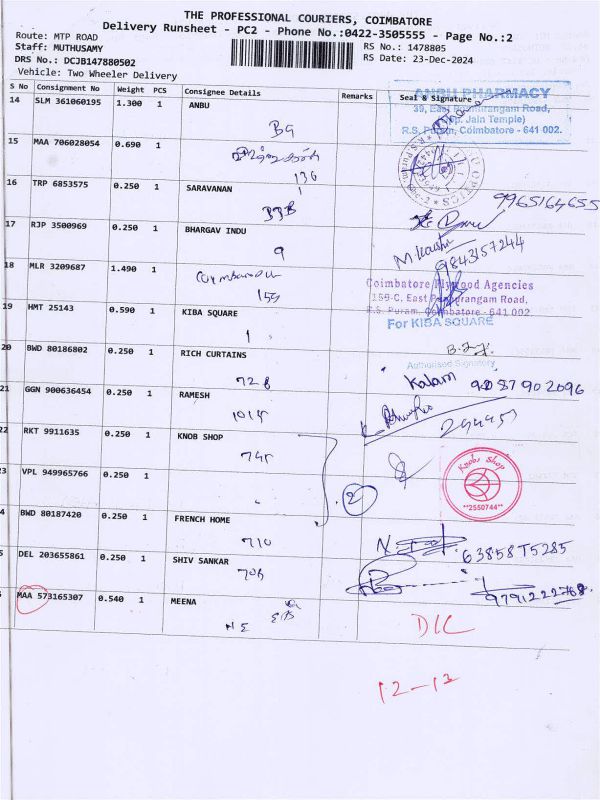 THE PROFESSIONAL COURIERS, COIMBATORE
Delivery Runsheet - PC2 - Phone No.:0422-3505555 - Page No.:2
Route: MTP ROAD
Staff: MUTHUSAMY
RS No.: 1478805
DRS No.: DCJB147880502
RS Date: 23-Dec-2024
Vehicle: Two Wheeler Delivery
S No Consignment No Weight PCS Consignee Details Remarks Seal & Signature
14 SLM 361060195 1.300 1 ANBU
ANBU PHARMACY
39, East Ponnurangam Road,
(Opp. Jain Temple)
R.S. Puram, Coimbatore - 641 002.
BG
15 MAA 706028054 0.690 1
136
16 TRP 6853575 0.250 1 SARAVANAN
33B
9965164655
17 RJP 3500969 0.250 1 BHARGAV INDU
9
9843157244
18 MLR 3209687 1.490 1
159
Coimbatore Plywood Agencies
159-C, East Ponnurangam Road,
R.S. Puram, Coimbatore - 641 002
19 HMT 25143 0.590 1 KIBA SQUARE
For KIBA SQUARE
1
Authorised Signatory
20 BWD 80186802 0.250 1 RICH CURTAINS
728
Kalam
21 GGN 900636454 0.250 1 RAMESH
1015
22 RKT 9911635 0.250 1 KNOB SHOP
745
Knob Shop
**2550744**
23 VPL 949965766 0.250 1
2
4 BWD 80187420 0.250 1 FRENCH HOME
710
5 DEL 203655861 0.250 1 SHIV SANKAR
9791222768
MAA 573165307 0.540 1 MEENA
D/C
12-13